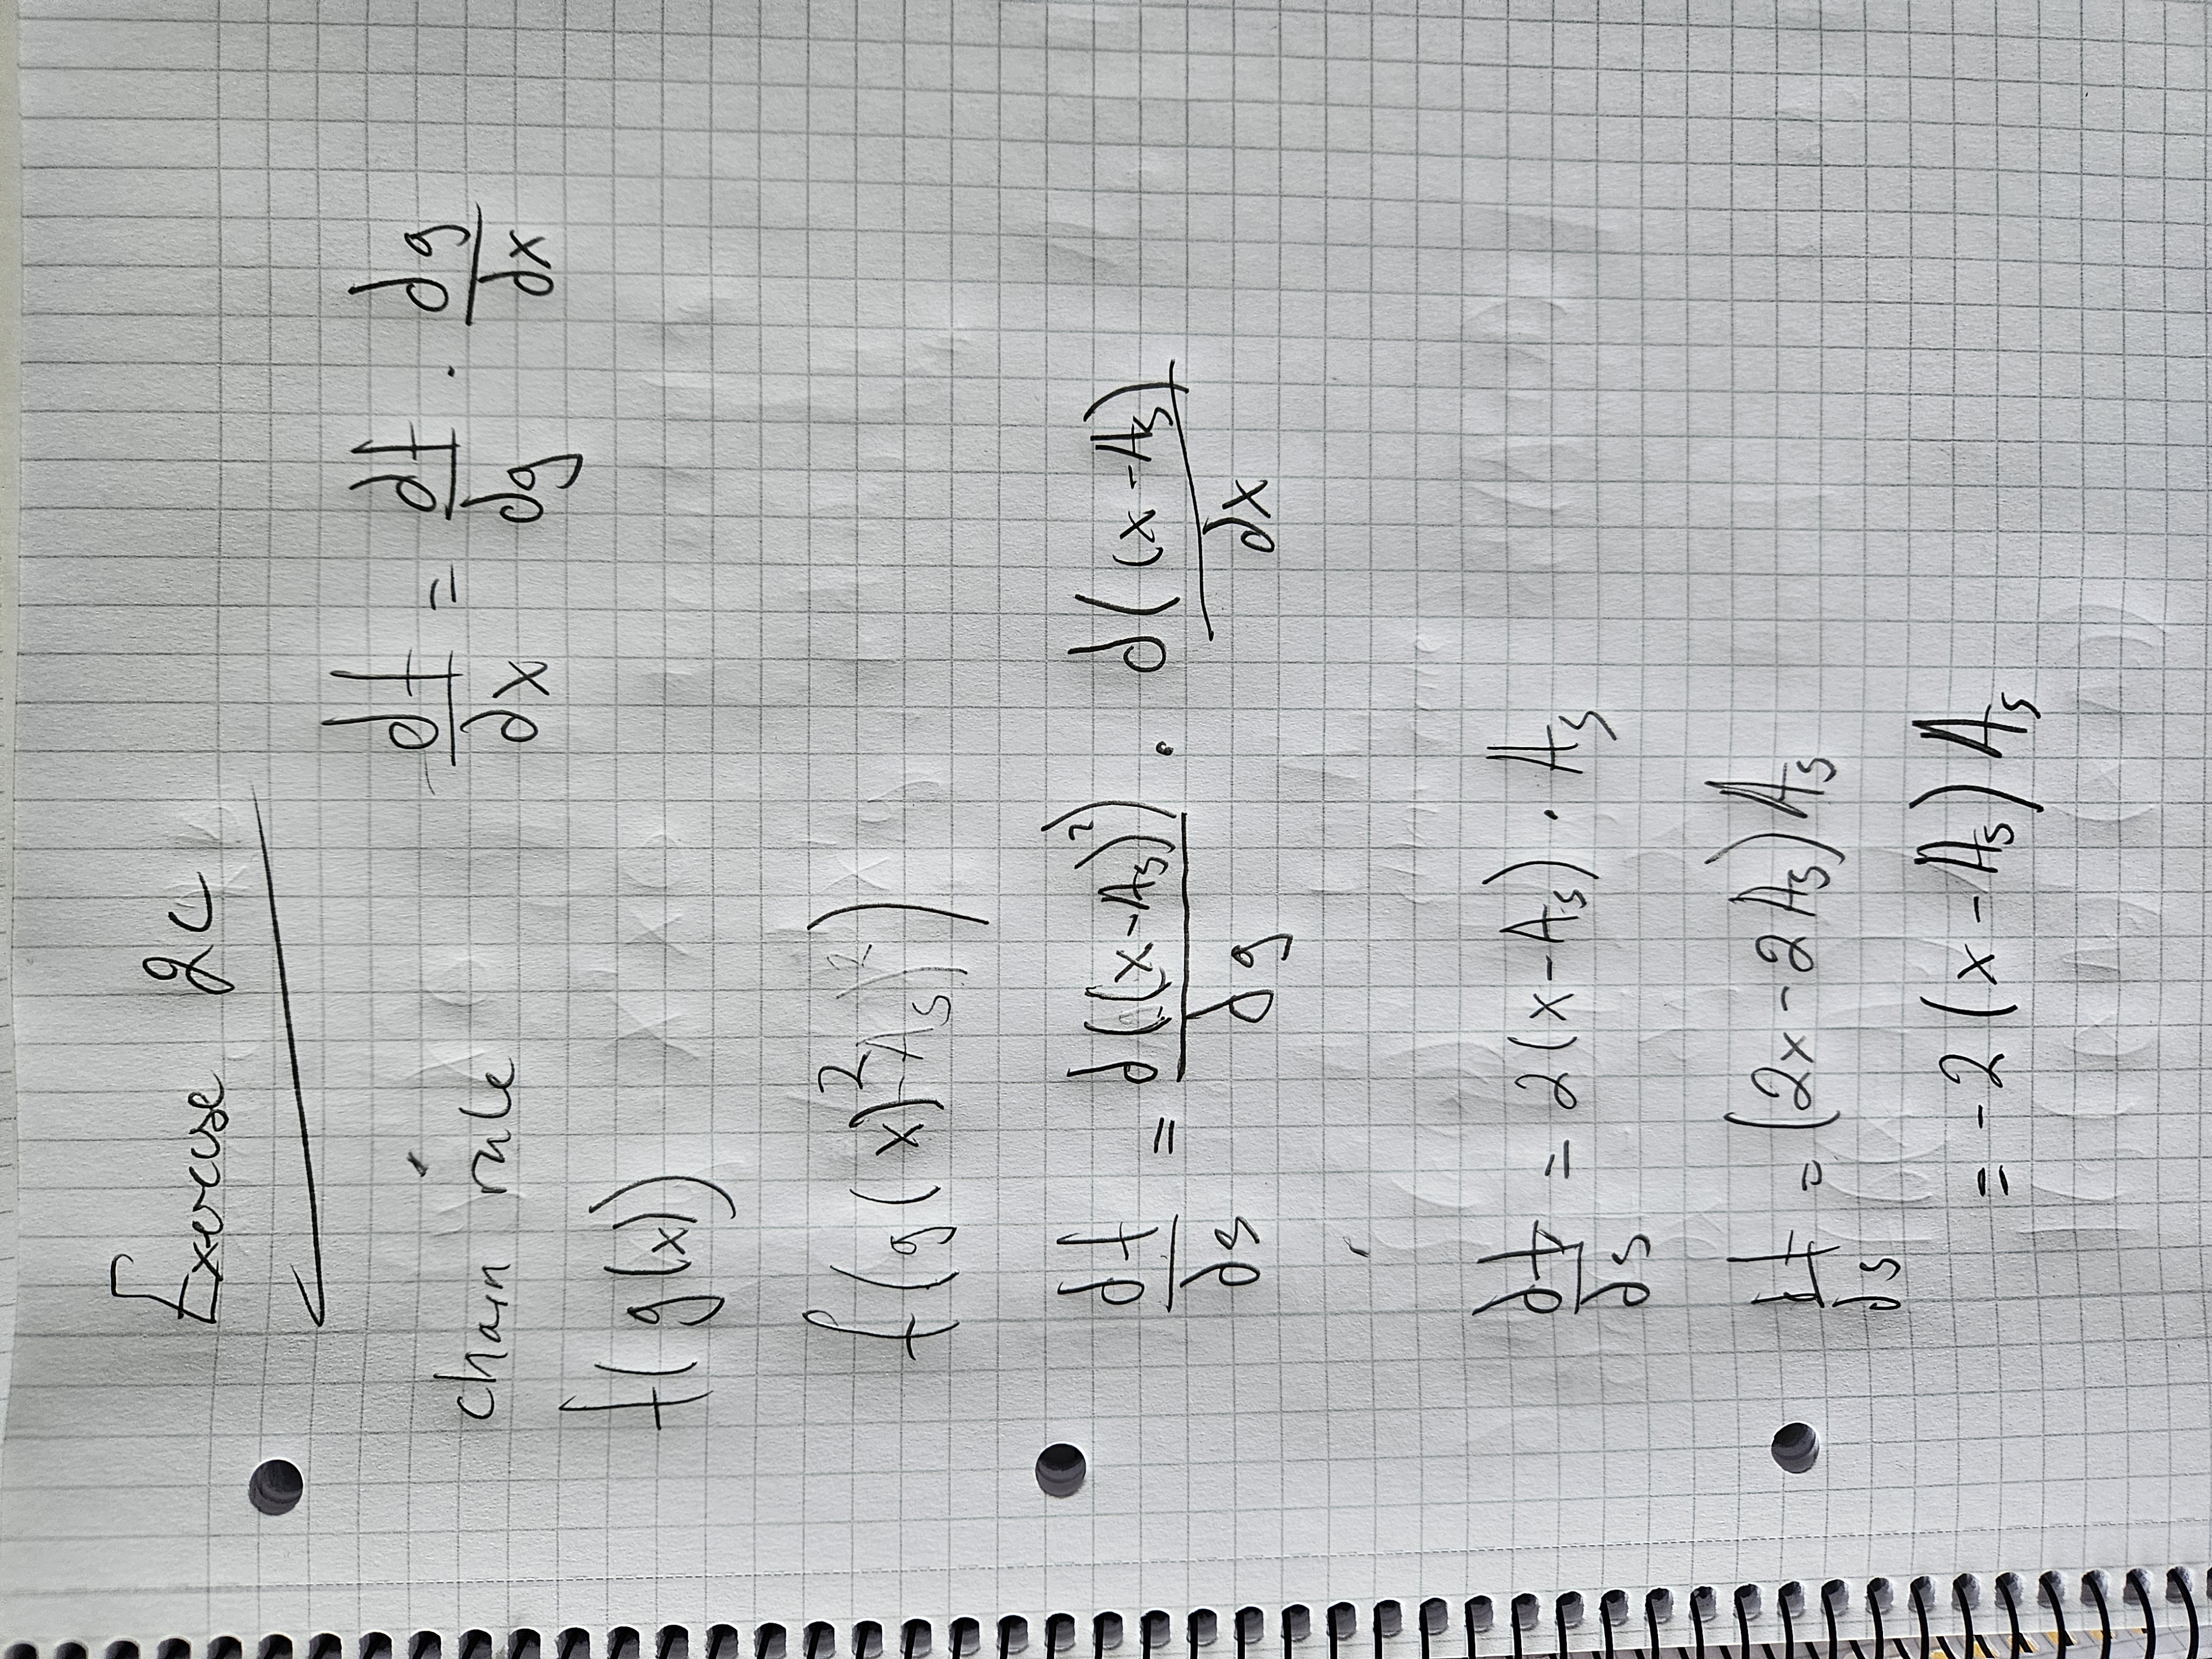 Exercise 2c
chain rule df/dx = df/dg · dg/dx
f(g(x))
f(g(x)²-As)²)
df/ds = d((x-As)²)/dg · d((x-As)/dx
df/ds = 2(x-As) · As
df/ds = (2x-2As)As
= -2(x-As)As